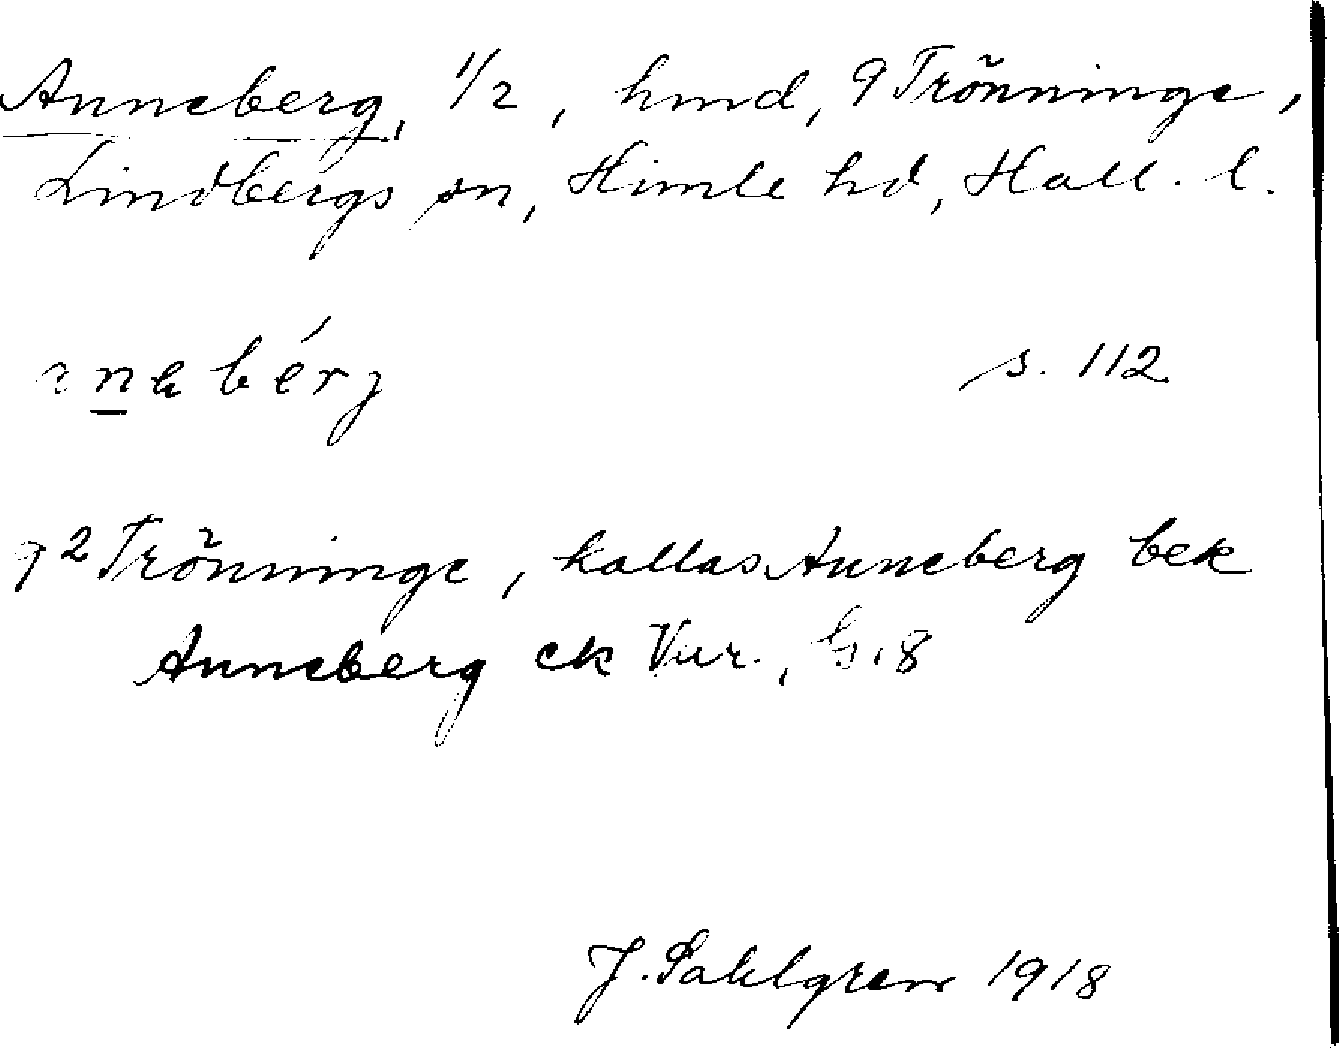 Anneberg, 1/2, hmd, 9 Trönninge,
Lindbergs sn, Himle hd, Hall. l.
anabérj s. 112
92 Trönninge, kallas Anneberg bek
Anneberg ek Vur., G. 8
J. Sahlgren 1918